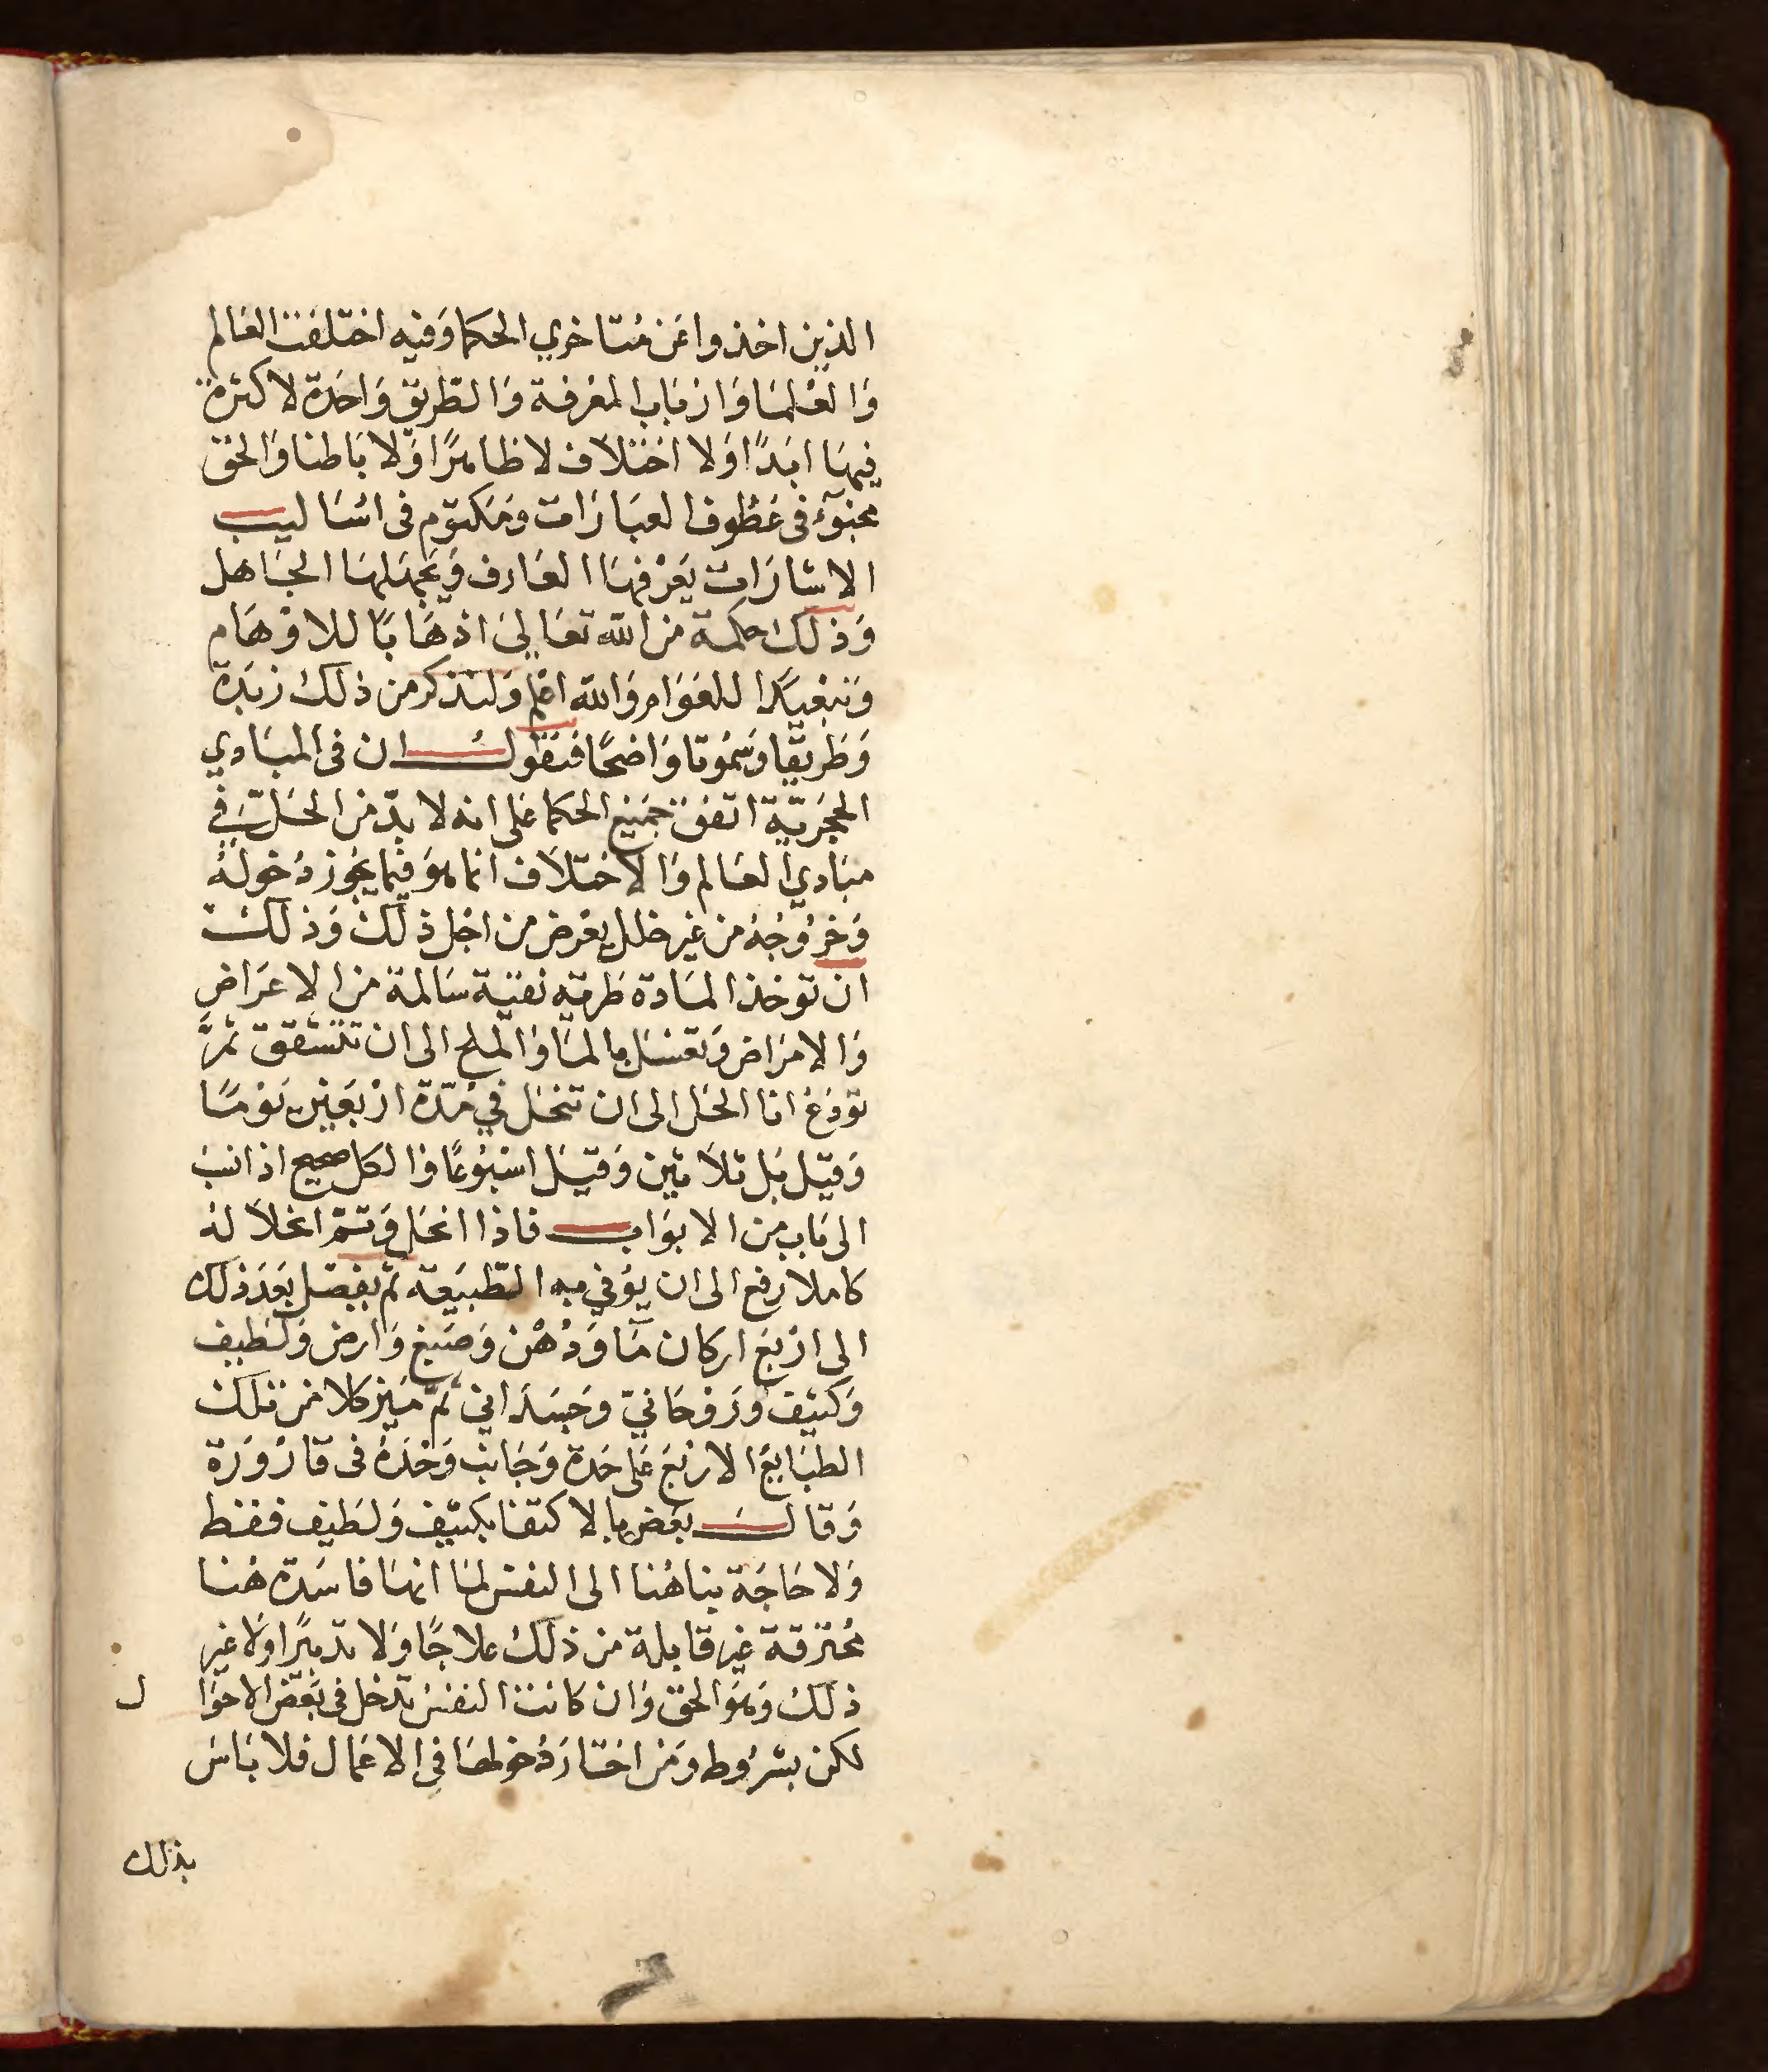 الذين اخذوا عَن مُتاخري الحكما وَفيه اختلفت العَالم
وَالعُلمَا وَارْبَاب المعْرفة وَالطّريق وَاحَدة لا كثرة
فيهَا ابَدًا وَلا اختلاف لا ظاهرًا وَلا بَاطنا وَالحَق
مخبوءٌ فى عَطُوف العبَارَات وَمَكتوم فى اسَاليب
الاشَارَات يَعْرفهَا العَارف وَيَجهَلهَا الجَاهل
وَذلك حكمة من الله تعَالىَ اذهَابًا للاوْهَام
وَتبْعيدًا للعَوَام وَالله اعْلم وَلنذكر من ذلك زبَدة
وَطَريقا وَسمُوتا وَاضحًا فنقولُ ان فى المبَادي
الحجَرية اتفق جَميع الحكما عَلى انه لا بدّ من الحَل فِي
مبَادي العَالم وَالاختلاَف انما هوَ فيما يجُوز دُخولهُ
وَخرُوجُهُ من غير خلل يعْرض من اجْل ذلك وَذلك
ان توخذ المَادة طَريه نقيّة سَالمة من الاعَراض
وَالامرَاض وَتغسَل بالمَا وَالملح الى ان تتشقق ثمَّ
تودَعُ انا الحَل الى ان تنحَل في مُدّة ارْبَعَيْن يَوْمًا
وَقيَل بَل ثلاَثين وَقيَل اسْبُوعًا وَالكل صحيح اذ انسب
الى بَاب من الابوَاب فاذا انحَل وَتمّ انحلاَلهُ
كاملا رفع الى ان يوُفي به الطّبيَعة ثم يفصَل بَعَدَ ذلك
الى ارْبَع اركان مَآ وَدُهْن وَصَبغ وَارض وَلطيف
وَكثيف وَرَوحَاني وَجَسَدَاني ثمّ مَيز كلا من تلك
الطبَايعُ الارْبَع عَلى حَدة وَجَانب وَحْدَهُ فى قارُورَة
وَقالَ بَعَض بالاكتفا بكثيف وَلطيف فقط
وَلا حَاجَة بناهُنا الى النفس لمَا انهَا فاسَدة هُنا
مُحْترقة غير قابلة من ذلك علاجًا وَلا تدبيرًا وَلا غير
ذلك وَهوَ الحق وَان كانت النفس تدخل فى بَعَض الاحوَا ل
لكن بشرُوط وَمَن اختارَهُ خولطَا فِي الاعمَال فلا بَاسَ
بذلك